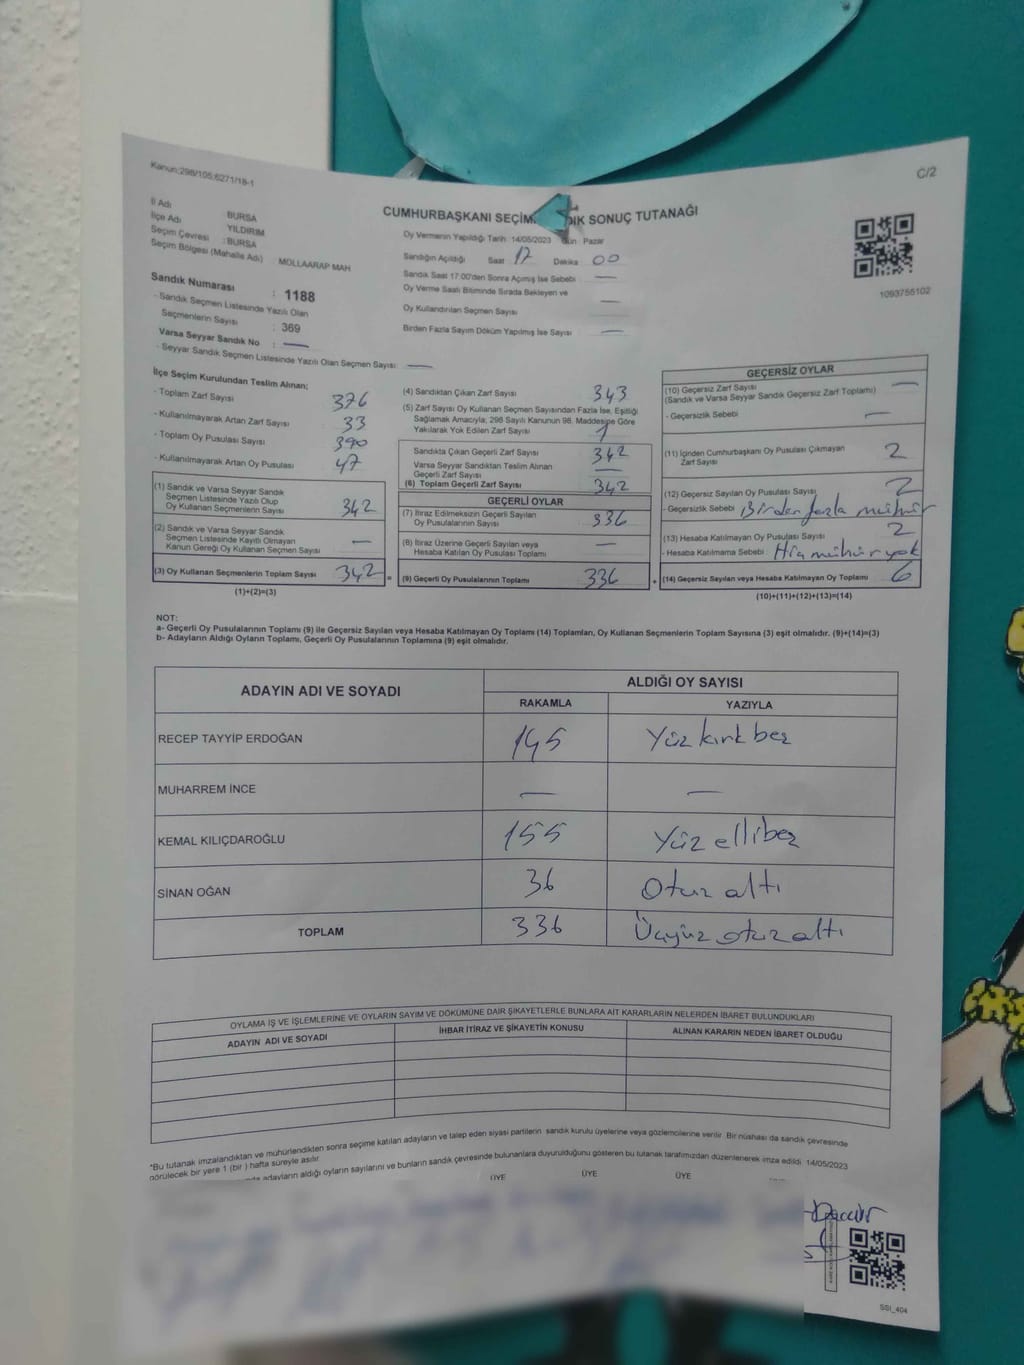 Kanun:298/105;6271/18-1
C/2
CUMHURBAŞKANI SEÇİM SONUÇ TUTANAĞI
İl Adı BURSA
İlçe Adı YILDIRIM
Seçim Çevresi : BURSA
Seçim Bölgesi (Mahalle Adı) MOLLAARAP MAH
Sandık Numarası : 1188
- Sandık Seçmen Listesinde Yazılı Olan
Seçmenlerin Sayısı : 369
Varsa Seyyar Sandık No : —
- Seyyar Sandık Seçmen Listesinde Yazılı Olan Seçmen Sayısı : —
Oy Vermenin Yapıldığı Tarih: 14/05/2023 Gün : Pazar
Sandığın Açıldığı Saat 17 Dakika 00
Sandık Saat 17:00'den Sonra Açımış İse Sebebi : —
Oy Verme Saati Bitiminde Sırada Bekleyen ve
Oy Kullandırılan Seçmen Sayısı : —
Birden Fazla Sayım Döküm Yapılmış İse Sayısı : —
1093755102
İlçe Seçim Kurulundan Teslim Alınan;
- Toplam Zarf Sayısı 376
- Kullanılmayarak Artan Zarf Sayısı 33
- Toplam Oy Pusulası Sayısı 390
- Kullanılmayarak Artan Oy Pusulası 47
(1) Sandık ve Varsa Seyyar Sandık
Seçmen Listesinde Yazılı Olup
Oy Kullanan Seçmenlerin Sayısı 342
(2) Sandık ve Varsa Seyyar Sandık
Seçmen Listesinde Kayıtlı Olmayan
Kanun Gereği Oy Kullanan Seçmen Sayısı —
(3) Oy Kullanan Seçmenlerin Toplam Sayısı 342 =
(1)+(2)=(3)
(4) Sandıktan Çıkan Zarf Sayısı 343
(5) Zarf Sayısı Oy Kullanan Seçmen Sayısından Fazla İse, Eşitliği
Sağlamak Amacıyla; 298 Sayılı Kanunun 98. Maddesine Göre
Yakılarak Yok Edilen Zarf Sayısı 1
Sandıkta Çıkan Geçerli Zarf Sayısı 342
Varsa Seyyar Sandıktan Teslim Alınan
Geçerli Zarf Sayısı —
(6) Toplam Geçerli Zarf Sayısı 342
GEÇERLİ OYLAR
(7) İtiraz Edilmeksizin Geçerli Sayılan
Oy Pusulalarının Sayısı 336
(8) İtiraz Üzerine Geçerli Sayılan veya
Hesaba Katılan Oy Pusulası Toplamı —
(9) Geçerli Oy Pusulalarının Toplamı 336 +
GEÇERSİZ OYLAR
(10) Geçersiz Zarf Sayısı —
(Sandık ve Varsa Seyyar Sandık Geçersiz Zarf Toplamı)
- Geçersizlik Sebebi —
(11) İçinden Cumhurbaşkanı Oy Pusulası Çıkmayan
Zarf Sayısı 2
(12) Geçersiz Sayılan Oy Pusulası Sayısı 2
- Geçersizlik Sebebi : Birden fazla mühür
(13) Hesaba Katılmayan Oy Pusulası Sayısı 2
- Hesaba Katılmama Sebebi : Hiç mühür yok
(14) Geçersiz Sayılan veya Hesaba Katılmayan Oy Toplamı 6
(10)+(11)+(12)+(13)=(14)
NOT:
a- Geçerli Oy Pusulalarının Toplamı (9) ile Geçersiz Sayılan veya Hesaba Katılmayan Oy Toplamı (14) Toplamları, Oy Kullanan Seçmenlerin Toplam Sayısına (3) eşit olmalıdır. (9)+(14)=(3)
b- Adayların Aldığı Oyların Toplamı, Geçerli Oy Pusulalarının Toplamına (9) eşit olmalıdır.
ADAYIN ADI VE SOYADI ALDIĞI OY SAYISI
RAKAMLA YAZIYLA
RECEP TAYYİP ERDOĞAN 145 Yüz kırk beş
MUHARREM İNCE — —
KEMAL KILIÇDAROĞLU 155 Yüz elli beş
SİNAN OĞAN 36 Otuz altı
TOPLAM 336 Üçyüz otuz altı
OYLAMA İŞ VE İŞLEMLERİNE VE OYLARIN SAYIM VE DÖKÜMÜNE DAİR ŞİKAYETLERLE BUNLARA AİT KARARLARIN NELERDEN İBARET BULUNDUKLARI
ADAYIN ADI VE SOYADI İHBAR İTİRAZ VE ŞİKAYETİN KONUSU ALINAN KARARIN NEDEN İBARET OLDUĞU
*Bu tutanak imzalandıktan ve mühürlendikten sonra seçime katılan adayların ve talep eden siyasi partilerin sandık kurulu üyelerine veya gözlemcilerine verilir. Bir nüshası da sandık çevresinde
görülecek bir yere 1 (bir ) hafta süreyle asılır.
adayların aldığı oyların sayılarını ve bunların sandık çevresinde bulunanlara duyurulduğunu gösteren bu tutanak tarafımızdan düzenlenerek imza edildi. 14/05/2023
ÜYE ÜYE ÜYE
SSI_404